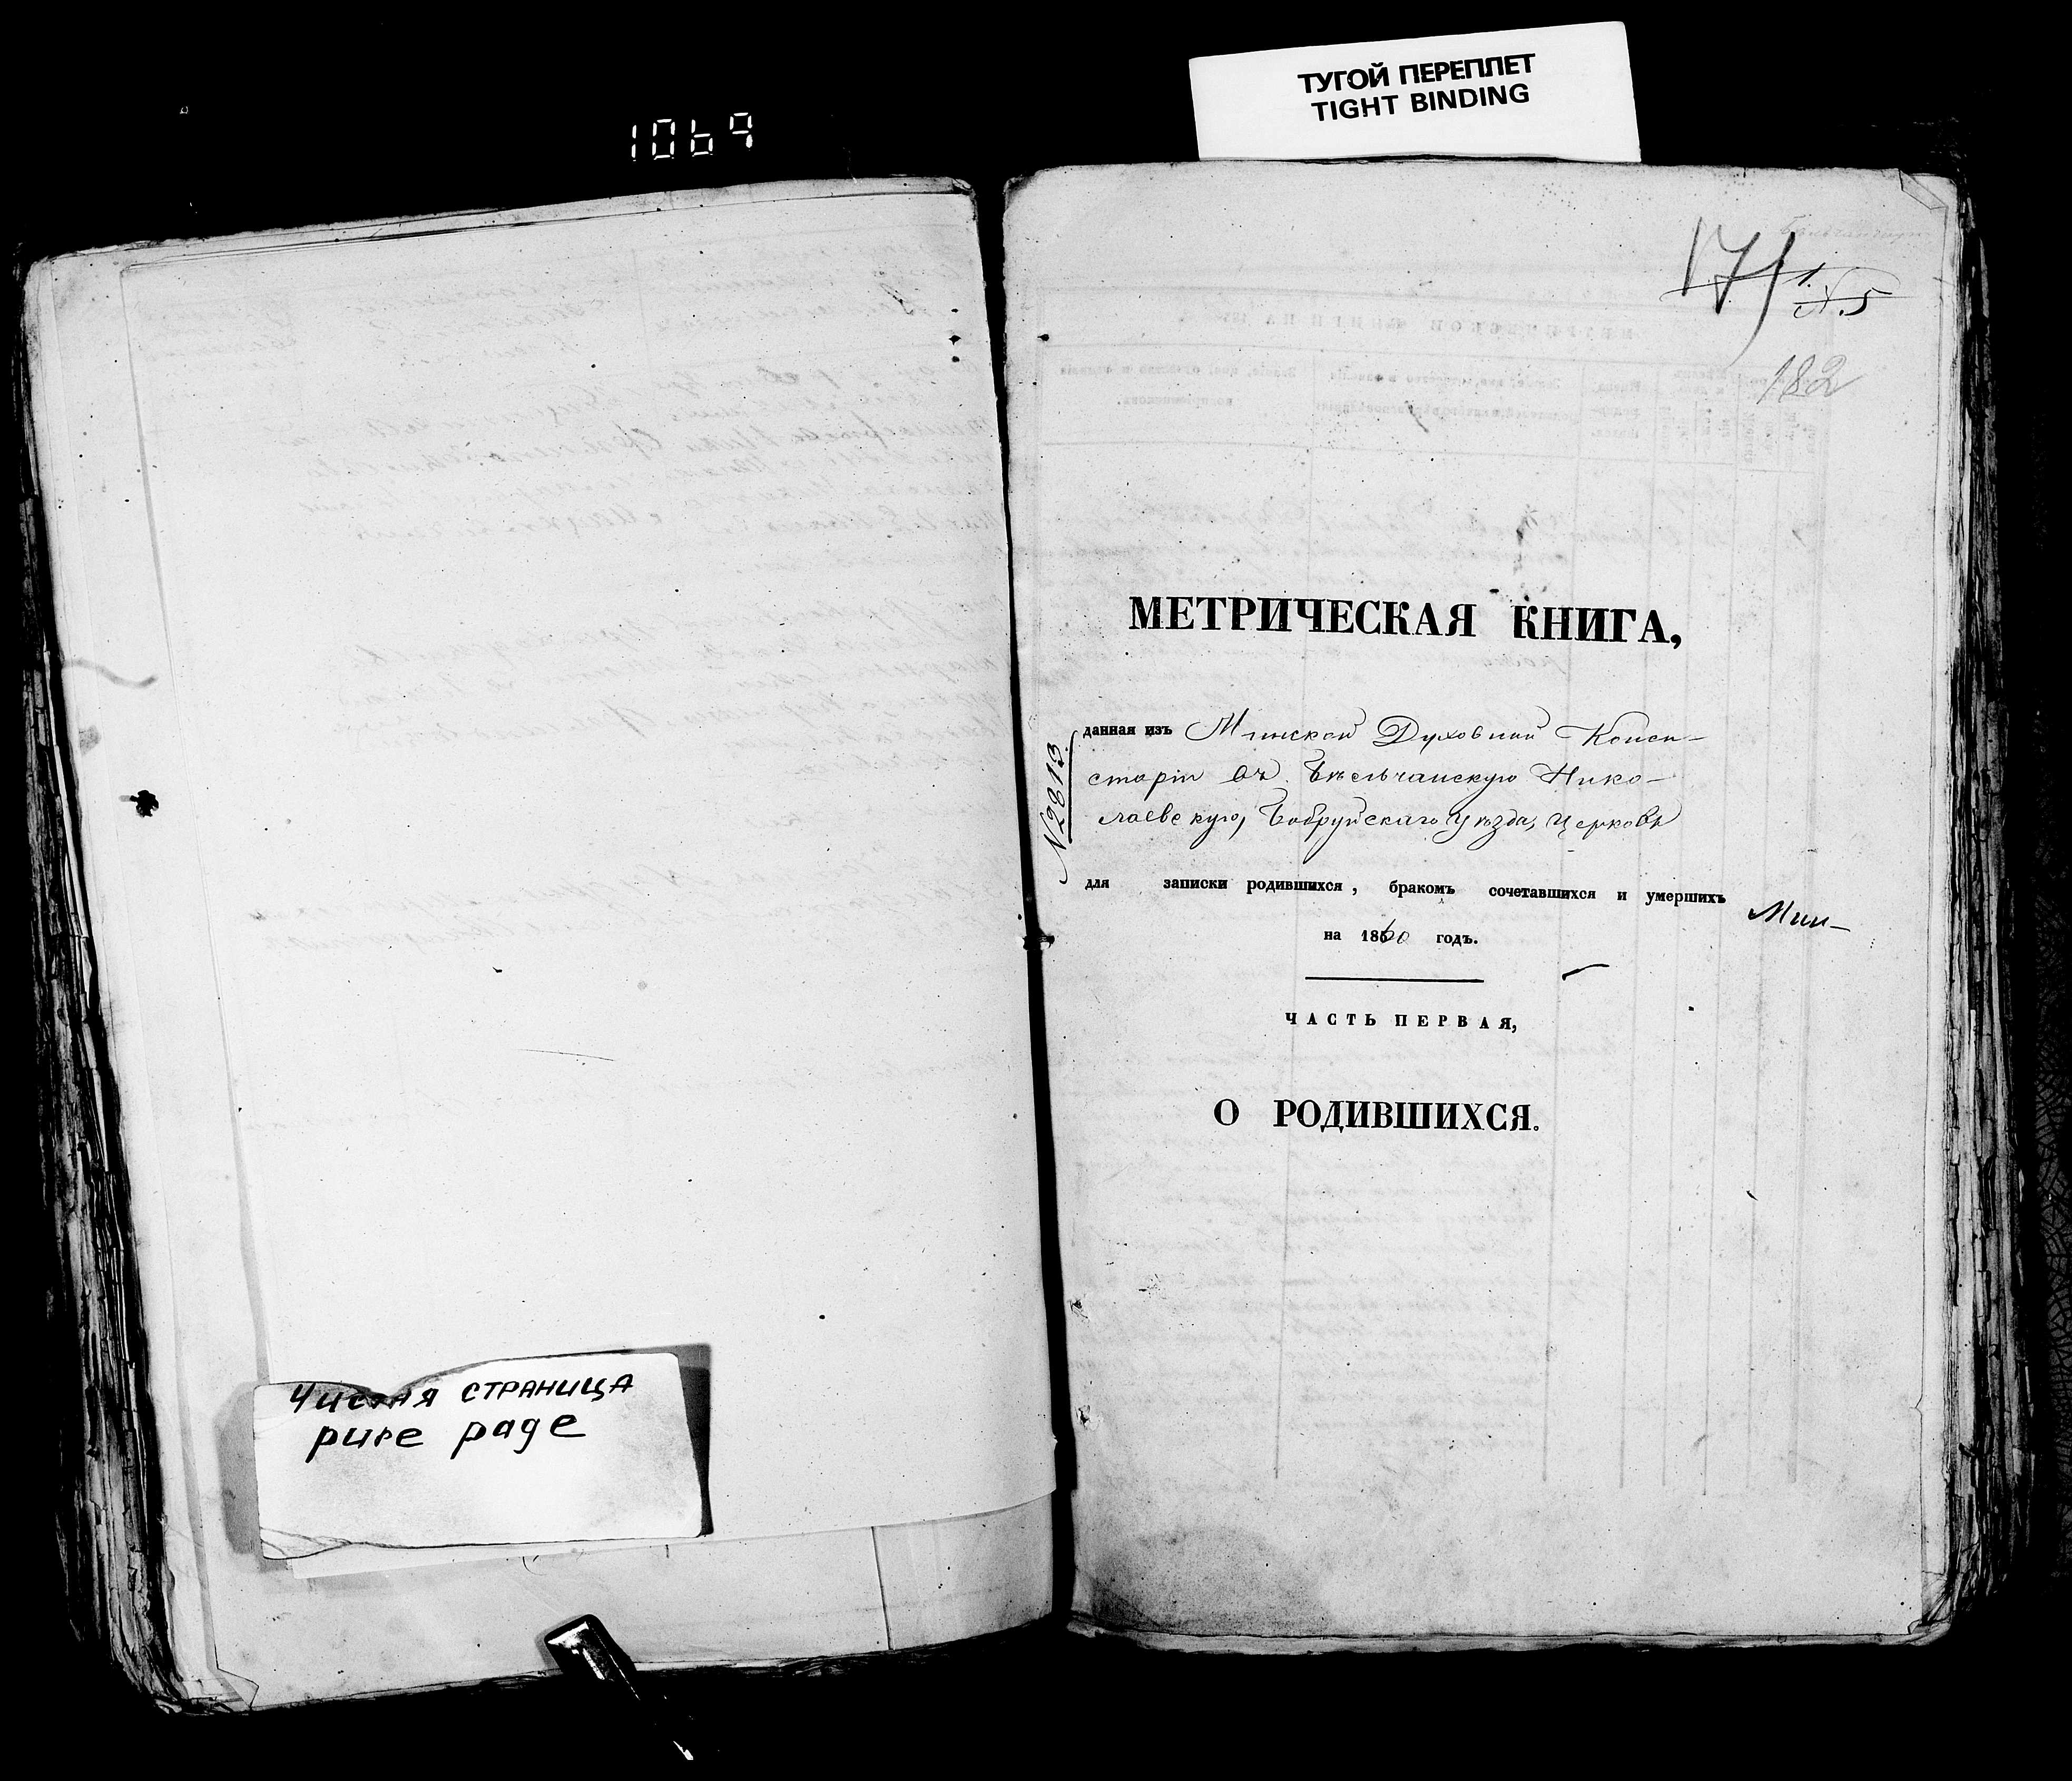 1069
ТУГОЙ ПЕРЕПЛЕТ
TIGHT BINDING
171
№5
182
МЕТРИЧЕСКАЯ КНИГА,
данная изъ Минской Духовной Конси-
сторіи въ Бѣльчанскую Нико-
лаевскую, Бобруйскаго Уѣзда, Церковь
№2813
для записки родившихся, бракомъ сочетавшихся и умершихъ
на 1860 годъ.
Мин-
ЧАСТЬ ПЕРВАЯ,
О РОДИВШИХСЯ.
Чистая страница
pure page